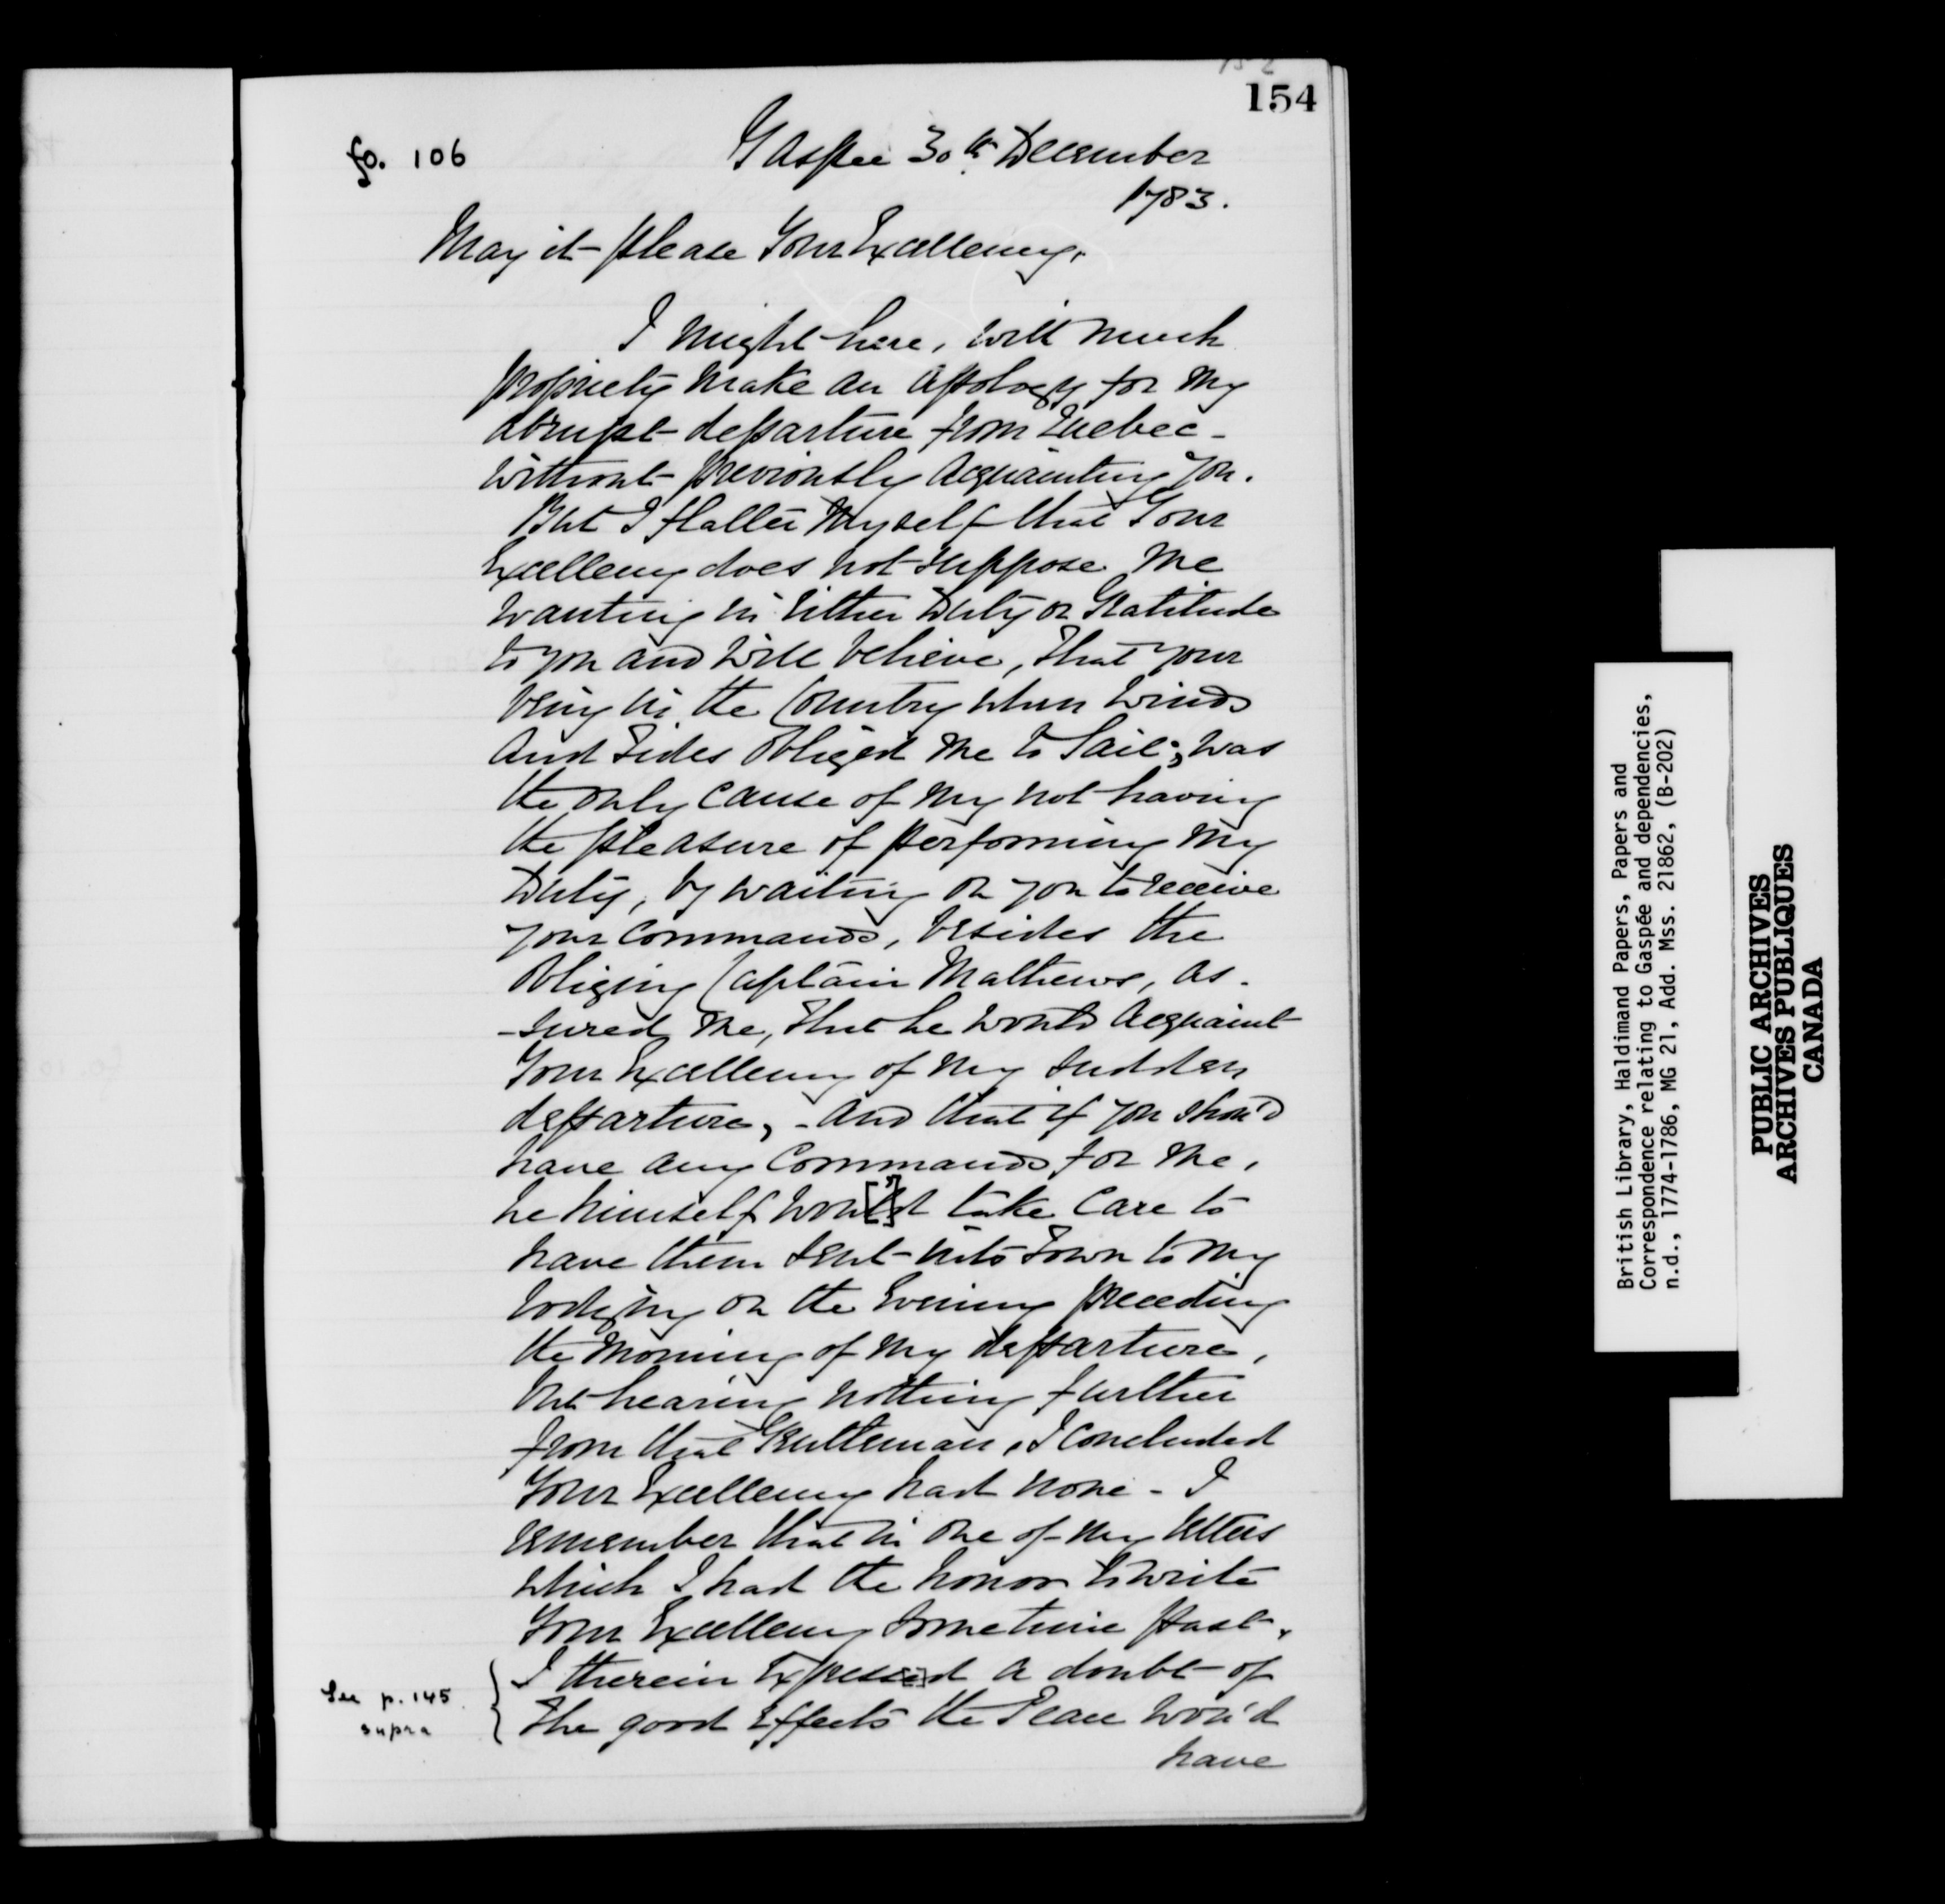 154
fo. 106
Gaspee 30th December
1783.
May it please Your Excellency,
I might here, with much
propriety make an Apology for my
abrupt departure from Quebec -
without previously acquainting you.
But I flatter Myself that Your
Excellency does not suppose Me
wanting in either Duty or Gratitude
to you and will believe, that your
being in the Country when Winds
And Tides Obliged Me to Sail; was
the only Cause of my not having
the pleasure of performing my
Duty, by waiting on you to receive
your Commands, besides the
Obliging Captain Mathews, as-
-sured Me, that he would Acquaint
Your Excellency of my sudden
departure, - and that if you shou'd
have any Commands for Me,
he himself wou[l]d take Care to
have them sent into Town to my
lodging on the Evening preceding
the Morning of my departure,
but hearing nothing further
from that Gentleman, I Concluded
Your Excellency had none - I
remember that in one of my letters
which I had the honor to write
Your Excellency Sometime past,
I therein Expess[e]d a doubt of
See p. 145
supra
the good Effects the Peace wou'd
have
British Library, Haldimand Papers, Papers and
Correspondence relating to Gaspée and dependencies,
n.d., 1774-1786, MG 21, Add. Mss. 21862, (B-202)
PUBLIC ARCHIVES
ARCHIVES PUBLIQUES
CANADA